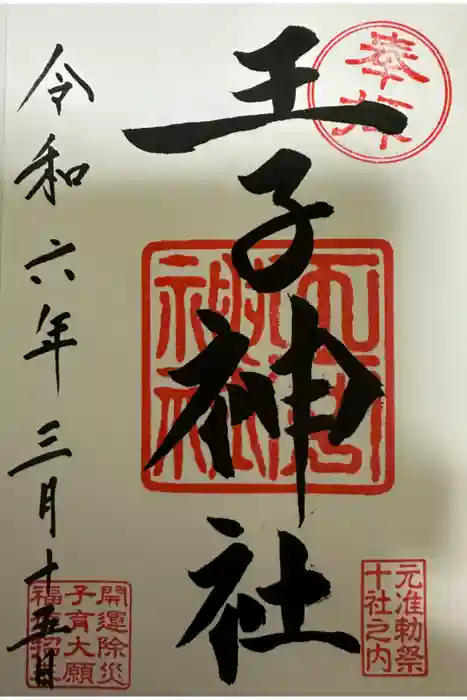 奉拝
王子神社
元准勅祭
十社之内
令和六年三月十五日
開運除災
子育大願
福招